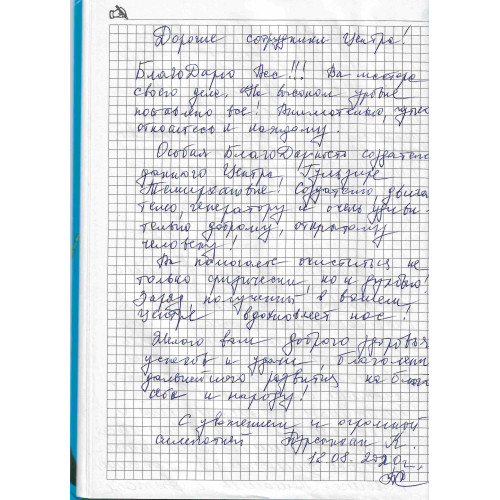 Дорогие сотрудники Центра!
БлагоДарю Вас!!! Вы мастера
своего дела. На высоком уровне
поставлено все! Внимательно, чутко
относитесь к каждому.
Особая БлагоДарность создателю
данного Центра, Гульзире
Темирхановне! Создателю, двига-
телю, генератору и очень удиви-
тельно доброму, открытому
человеку!
Вы помогаете очиститься не
только физически, но и духовно!
Заряд, полученный в вашем
Центре, вдохновляет нас!
Желаю вам доброго здоровья,
успехов и удачи,
дальнейшего развития на благо
себе и народу!
С уважением и огромной
симпатией К.
12.08. 2020г.